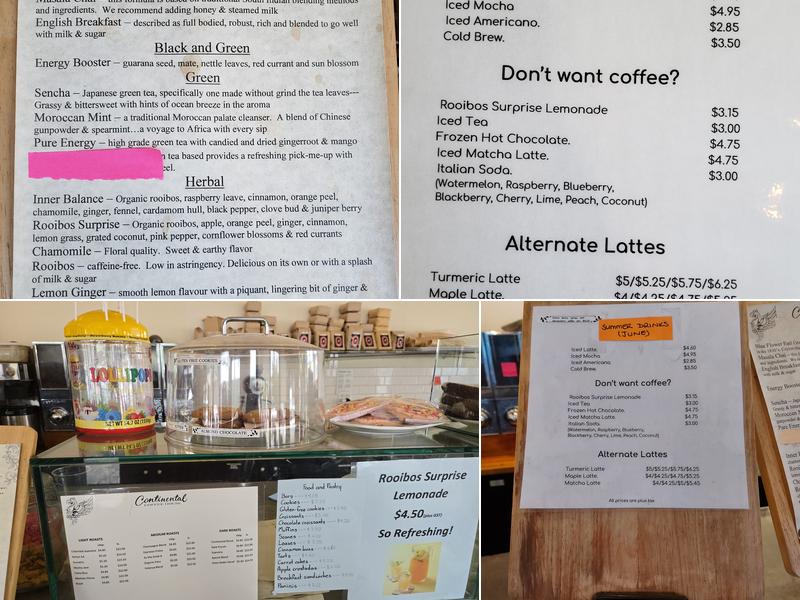 Masala Chai – this formula is based on traditional South Indian blending methods
and ingredients. We recommend adding honey & steamed milk
English Breakfast – described as full bodied, robust, rich and blended to go well
with milk & sugar
Black and Green
Energy Booster – guarana seed, mate, nettle leaves, red currant and sun blossom
Green
Sencha – Japanese green tea, specifically one made without grind the tea leaves---
Grassy & bittersweet with hints of ocean breeze in the aroma
Moroccan Mint – a traditional Moroccan palate cleanser. A blend of Chinese
gunpowder & spearmint…a voyage to Africa with every sip
Pure Energy – high grade green tea with candied and dried gingerroot & mango
tea based provides a refreshing pick-me-up with
Herbal
Inner Balance – Organic rooibos, raspberry leave, cinnamon, orange peel,
chamomile, ginger, fennel, cardamom hull, black pepper, clove bud & juniper berry
Rooibos Surprise – Organic rooibos, apple, orange peel, ginger, cinnamon,
lemon grass, grated coconut, pink pepper, cornflower blossoms & red currants
Chamomile – Floral quality. Sweet & earthy flavor
Rooibos – caffeine-free. Low in astringency. Delicious on its own or with a splash
of milk & sugar
Lemon Ginger – smooth lemon flavour with a piquant, lingering bit of ginger &
Iced Mocha $4.95
Iced Americano. $2.85
Cold Brew. $3.50
Don't want coffee?
Rooibos Surprise Lemonade $3.15
Iced Tea $3.00
Frozen Hot Chocolate. $4.75
Iced Matcha Latte. $4.75
Italian Soda. $3.00
(Watermelon, Raspberry, Blueberry,
Blackberry, Cherry, Lime, Peach, Coconut)
Alternate Lattes
Turmeric Latte $5/$5.25/$5.75/$6.25
Maple Latte. $4/$4.25/$4.75/$5.25
LOLLIPOPS
GLUTEN FREE COOKIES
ALMOND CHOCOLATE
Continental
LIGHT ROASTS
MEDIUM ROASTS
DARK ROASTS
Food and Pastry
Bars
Cookies
Gluten-free cookies
Croissants
Chocolate croissants
Muffins
Scones
Loaves
Cinnamon buns
Tarts
Carrot cakes
Apple crostadas
Breakfast sandwiches
Paninis
Rooibos Surprise
Lemonade
$4.50 (plus GST)
So Refreshing!
SUMMER DRINKS
(JUNE)
Iced Latte. $4.60
Iced Mocha $4.95
Iced Americano. $2.85
Cold Brew. $3.50
Don't want coffee?
Rooibos Surprise Lemonade $3.15
Iced Tea $3.00
Frozen Hot Chocolate. $4.75
Iced Matcha Latte. $4.75
Italian Soda. $3.00
(Watermelon, Raspberry, Blueberry,
Blackberry, Cherry, Lime, Peach, Coconut)
Alternate Lattes
Turmeric Latte $5/$5.25/$5.75/$6.25
Maple Latte. $4/$4.25/$4.75/$5.25
Matcha Latte $4/$4.25/$5/$5.45
All prices are plus tax